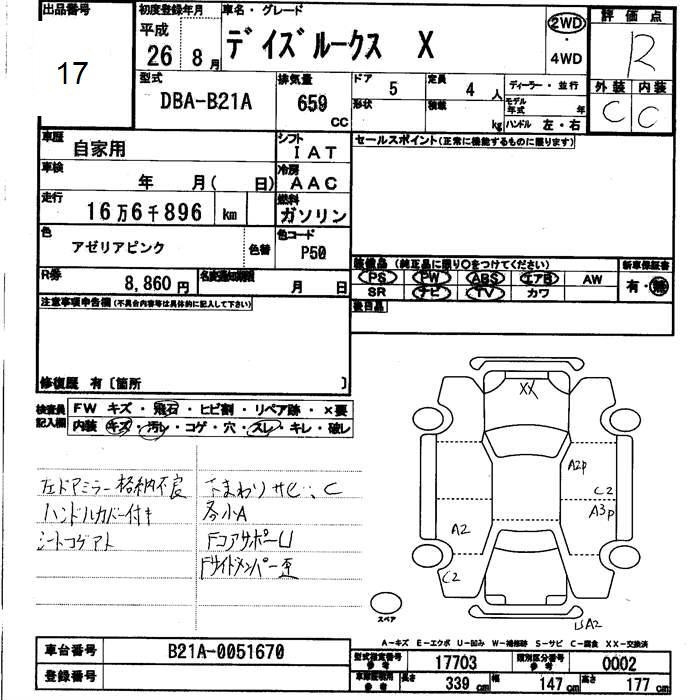 出品番号
17
初度登録年月
平成
26 8月
車名・グレード
デイズルークス X
2WD
・
4WD
評価点
R
外装 内装
C C
型式
DBA-B21A
排気量
659
CC
ドア
5
定員
4 人
ディーラー・並行
形状
積載
kg
モデル年式 年
ハンドル 左・右
車歴
自家用
シフト
IAT
セールスポイント(正常に機能するものに限ります)
車検
年 月( 日)
冷房
AAC
走行
16万6千896 km
燃料
ガソリン
色
アゼリアピンク
色替
色コード
P50
装備品 (純正品に限り○をつけてください)
新車保証書
PS PW ABS エアB AW
有・無
SR ナビ TV カワ
R券
8,860円
名変通知期限
月 日
後日品
注意事項申告欄(不具合内容等は具体的に記入して下さい)
修復歴 有〔箇所 〕
検査員
記入欄
FW キズ・飛石・ヒビ割・リペア跡・×要
内装 キズ・汚レ・コゲ・穴・スレ・キレ・破レ
左ドアミラー格納不良
ハンドルカバー付き
シートコゲアト
下まわりサビ、C
各小A
FコアサポーU
Fサイドメンバー歪
XX
A2P
C2
A3P
A2
C2
A2
スペア
A-キズ E-エクボ U-凹み W-補修跡 S-サビ C-腐食 XX-交換済
車台番号
B21A-0051670
型式指定番号
参考
17703
類別区分番号
参考
0002
登録番号
参考
長さ
339cm
幅
147cm
高さ
177cm